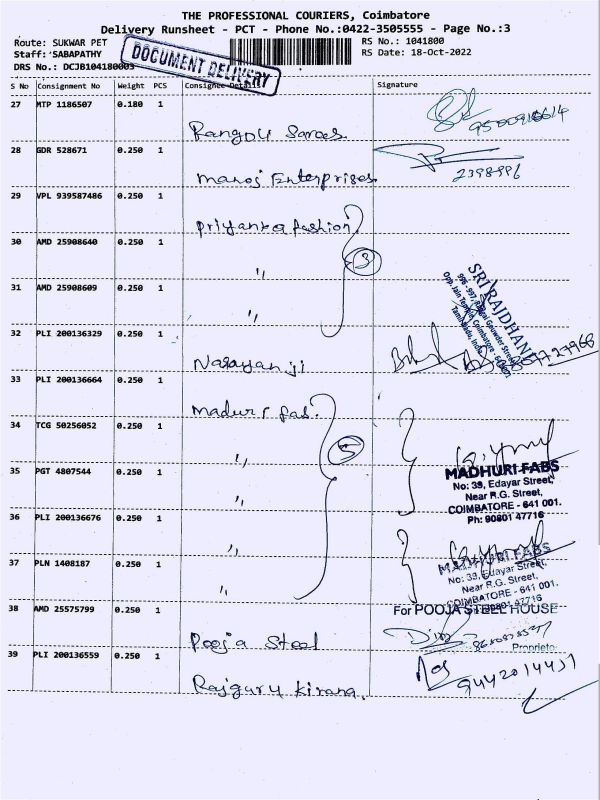 THE PROFESSIONAL COURIERS, Coimbatore
Delivery Runsheet - PCT - Phone No.:0422-3505555 - Page No.:3
Route: SUKWAR PET
RS No.: 1041800
Staff: SABAPATHY
RS Date: 18-Oct-2022
DRS No.: DCJB104180003
DOCUMENT DELIVERY
S No Consignment No Weight PCS Consignee Details Signature
27 MTP 1186507 0.180 1
9500916614
28 GDR 528671 0.250 1
Manoj Enterprises
2398996
29 VPL 939587486 0.250 1
Priyanka fashion
30 AMD 25908640 0.250 1
" 3
31 AMD 25908609 0.250 1
"
SRI RAJDHANI
Opp. Jain Temple, Coimbatore - 641001
Tamilnadu, India
32 PLI 200136329 0.250 1
Narayanji
33 PLI 200136664 0.250 1
Maduri fab.
34 TCG 50256052 0.250 1
" 5
35 PGT 4807544 0.250 1
"
MADHURI FABS
No: 39, Edayar Street,
Near R.G. Street,
COIMBATORE - 641 001.
Ph: 90801 47716
36 PLI 200136676 0.250 1
"
37 PLN 1408187 0.250 1
"
MADHURI FABS
No: 39, Edayar Street,
Near R.G. Street,
COIMBATORE - 641 001.
Ph: 90801 47716
38 AMD 25575799 0.250 1
For POOJA STEEL HOUSE
Pooja Steel
Proprietor
39 PLI 200136559 0.250 1
Rajguru Kirana.
9442014451